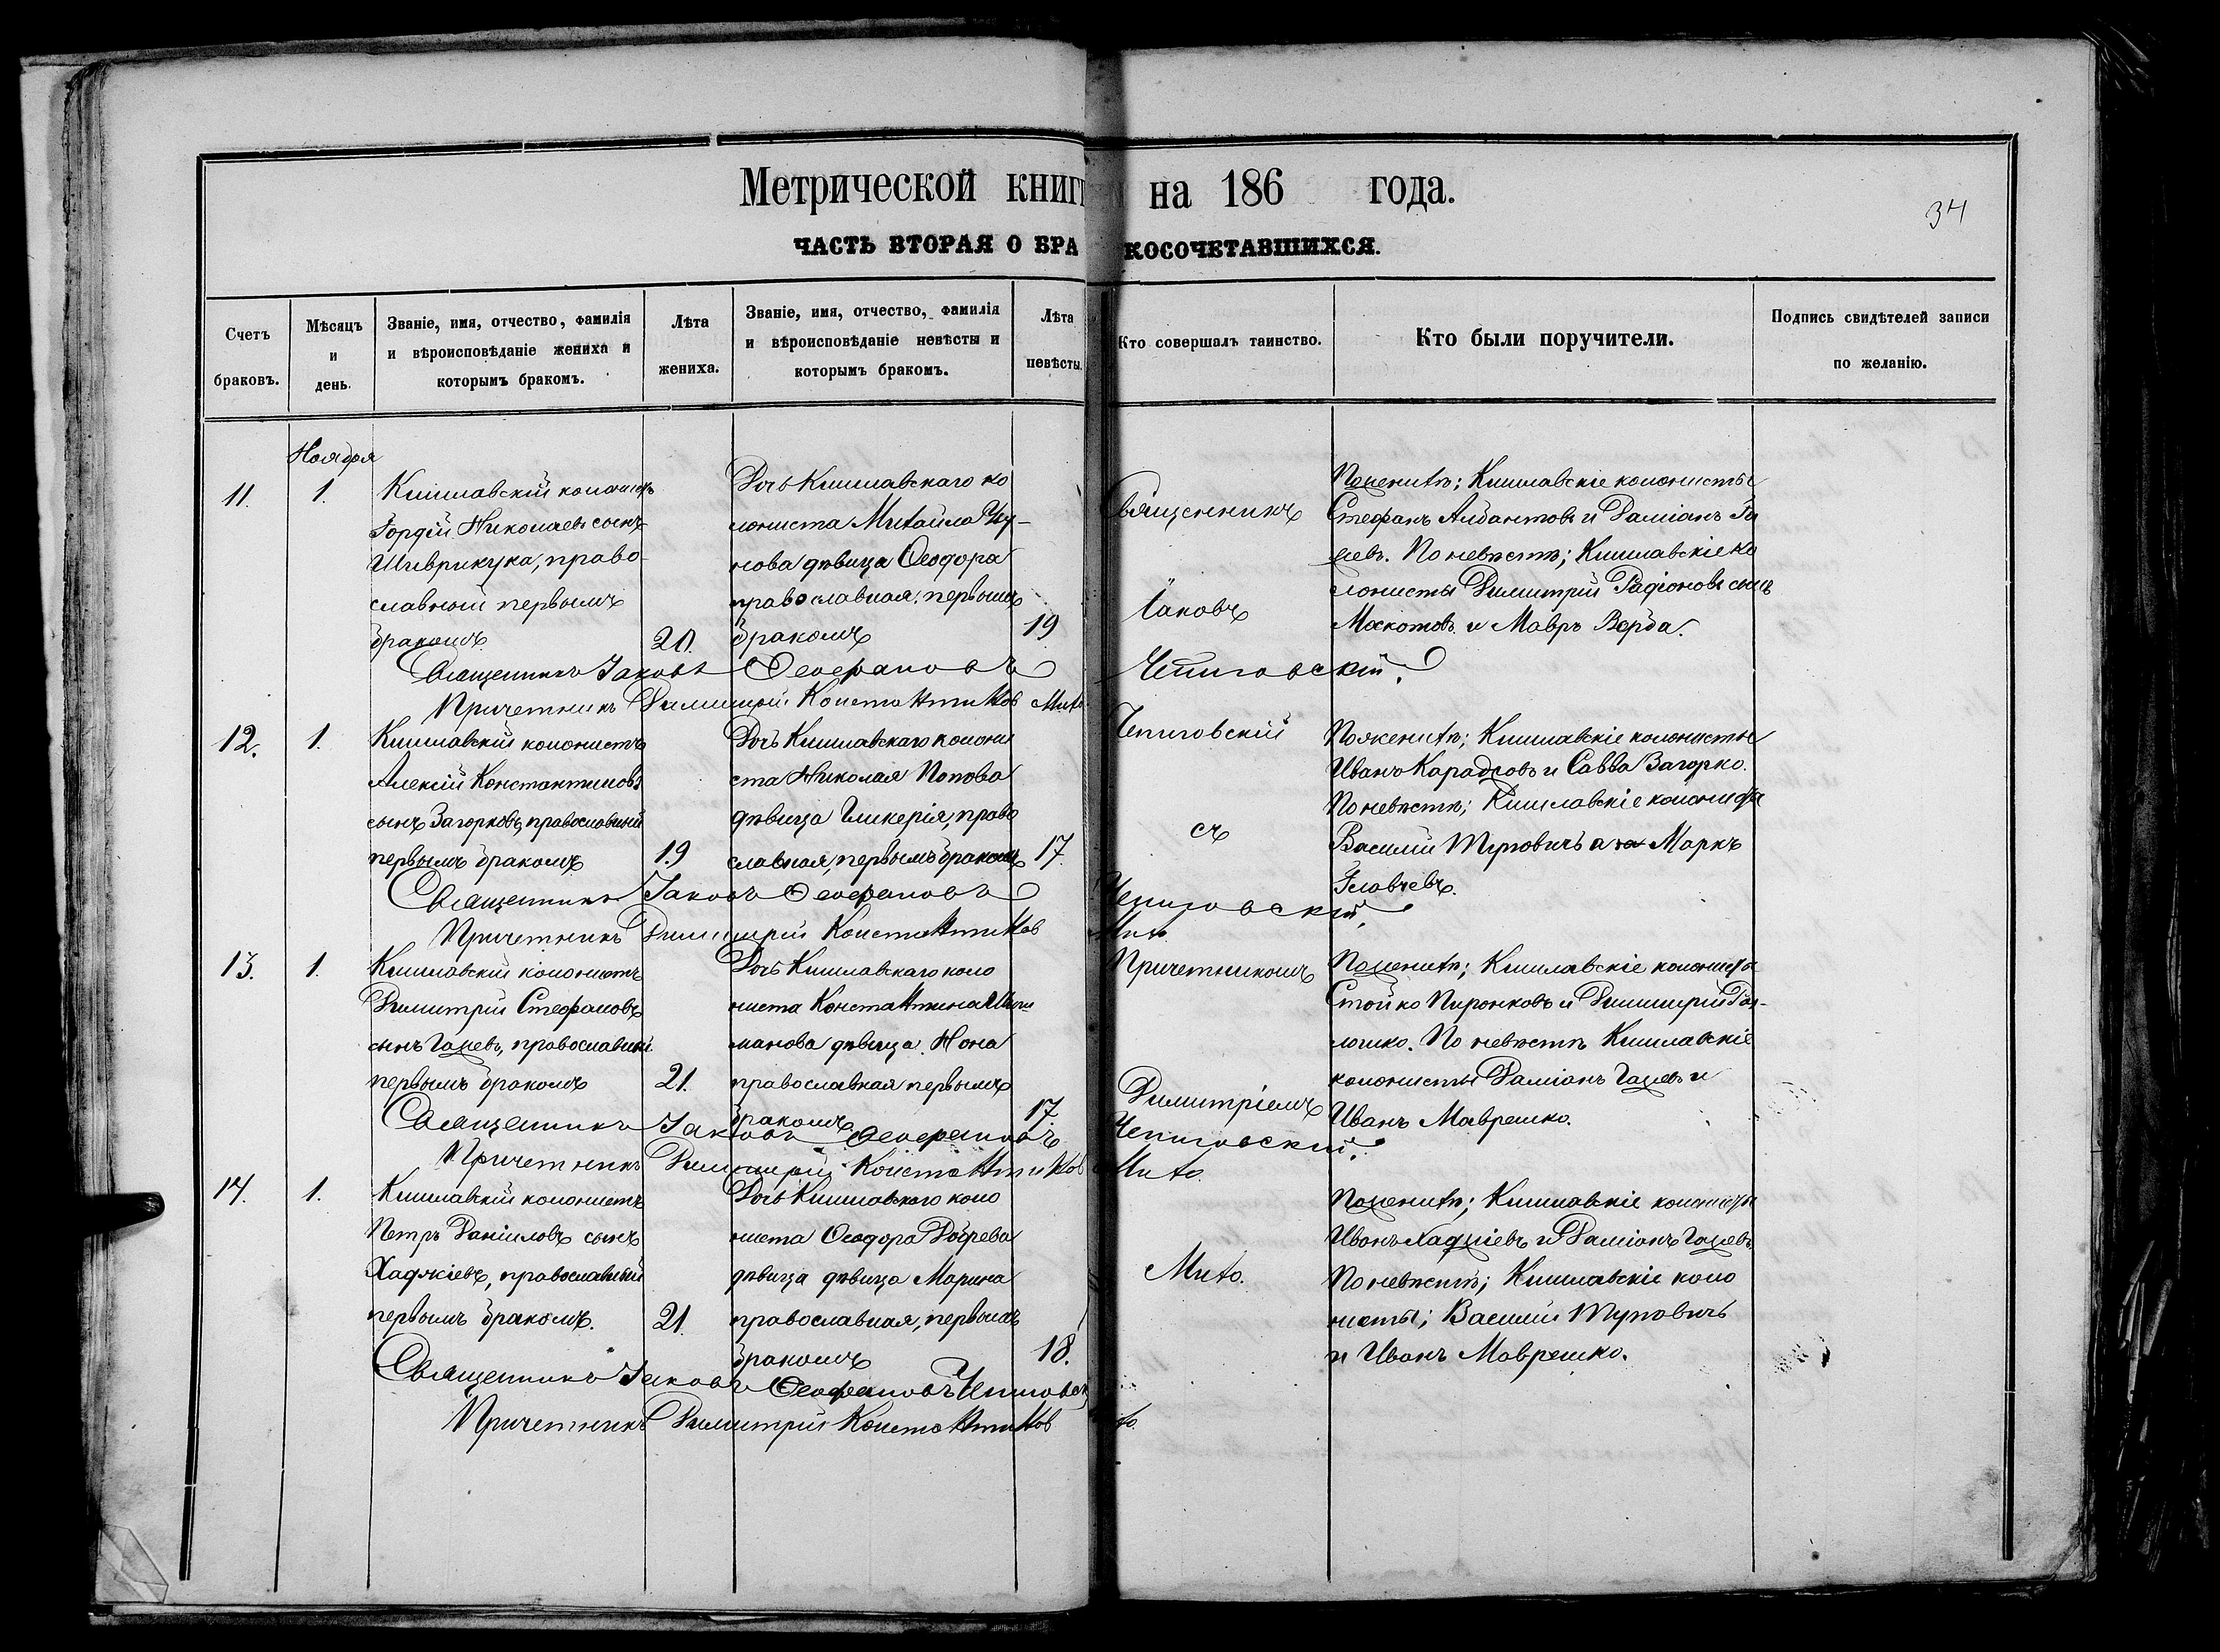 Метрической книги на 186 года.
34
ЧАСТЬ ВТОРАЯ О БРАКОСОЧЕТАВШИХСЯ.
Счетъ браковъ.
Мѣсяцъ и день.
Званіе, имя, отчество, фамилія и вѣроисповѣданіе жениха и которымъ бракомъ.
Лѣта жениха.
Званіе, имя, отчество, фамилія и вѣроисповѣданіе невѣсты и которымъ бракомъ.
Лѣта невѣсты.
Кто совершалъ таинство.
Кто были поручители.
Подпись свидѣтелей записи по желанію.
Ноября
11.
1.
Кишлавскій колонистъ
Гордій Николаевъ сынъ
Шиврикука, право-
славный первымъ
бракомъ
20.
Дочь Кишлавскаго ко
лониста Михайла
нова дѣвица Ѳеодора
православная, первымъ
бракомъ
19
Священникъ
Іаковъ
По женихѣ; Кишлавскіе колонисты
Стефанъ и Даміанъ Га
жевъ. По невѣстѣ; Кишлавскіе ко
лонисты Димитрій Радіоновъ сынъ
и Мавръ Верба.
Священникъ Іаковъ Ѳеофановъ Чепиговскій.
Причетникъ Димитрій Константиновъ Михо
12.
1.
Кишлавскій колонистъ
Алексій Константиновъ
сынъ Загорковъ, православный
первымъ бракомъ
19
Дочь Кишлавскаго колони
ста Николая Попова
дѣвица Гликерія, право
славная, первымъ бракомъ
17.
Чепиговскій
съ
По женихѣ; Кишлавскіе колонисты
Иванъ Карадсовъ и Савва Загорко.
По невѣстѣ; Кишлавскіе колонисты
Василій Туповичъ Маркъ
Главчевъ.
Священникъ Іаковъ Ѳеофановъ Чепиговскій.
Причетникъ Димитрій Константиновъ Михо
13.
1.
Кишлавскій колонистъ
Димитрій Стефановъ
сынъ Гажевъ, православный
первымъ бракомъ
21.
Дочь Кишлавскаго коло
ниста Константина
манова дѣвица Нона
православная первымъ
бракомъ
17.
Причетникомъ
Димитріемъ
По женихѣ; Кишлавскіе колонисты
Стойко Пиронковъ и Димитрій
ложко. По невѣстѣ Кишлавскіе
колонисты Даміанъ Гажевъ и
Иванъ Маврешко.
Священникъ Іаковъ Ѳеофановъ Чепиговскій.
Причетникъ Димитрій Константиновъ Михо.
14.
1.
Кишлавскій колонистъ
Петръ Даніиловъ сынъ
Хаджіевъ, православный
первымъ бракомъ.
21.
Дочь Кишлавскаго коло
ниста Ѳеодора Добрева
дѣвица дѣвица Марина
православная, первымъ
бракомъ
18.
Михо.
По женихѣ; Кишлавскіе колонисты
Иванъ Хаджіевъ и Даміанъ Гажевъ,
По невѣстѣ; Кишлавскіе коло
нисты; Василій Туповичъ
и Иванъ Маврешко.
Священникъ Іаковъ Ѳеофановъ
Причетникъ Димитрій Константиновъ